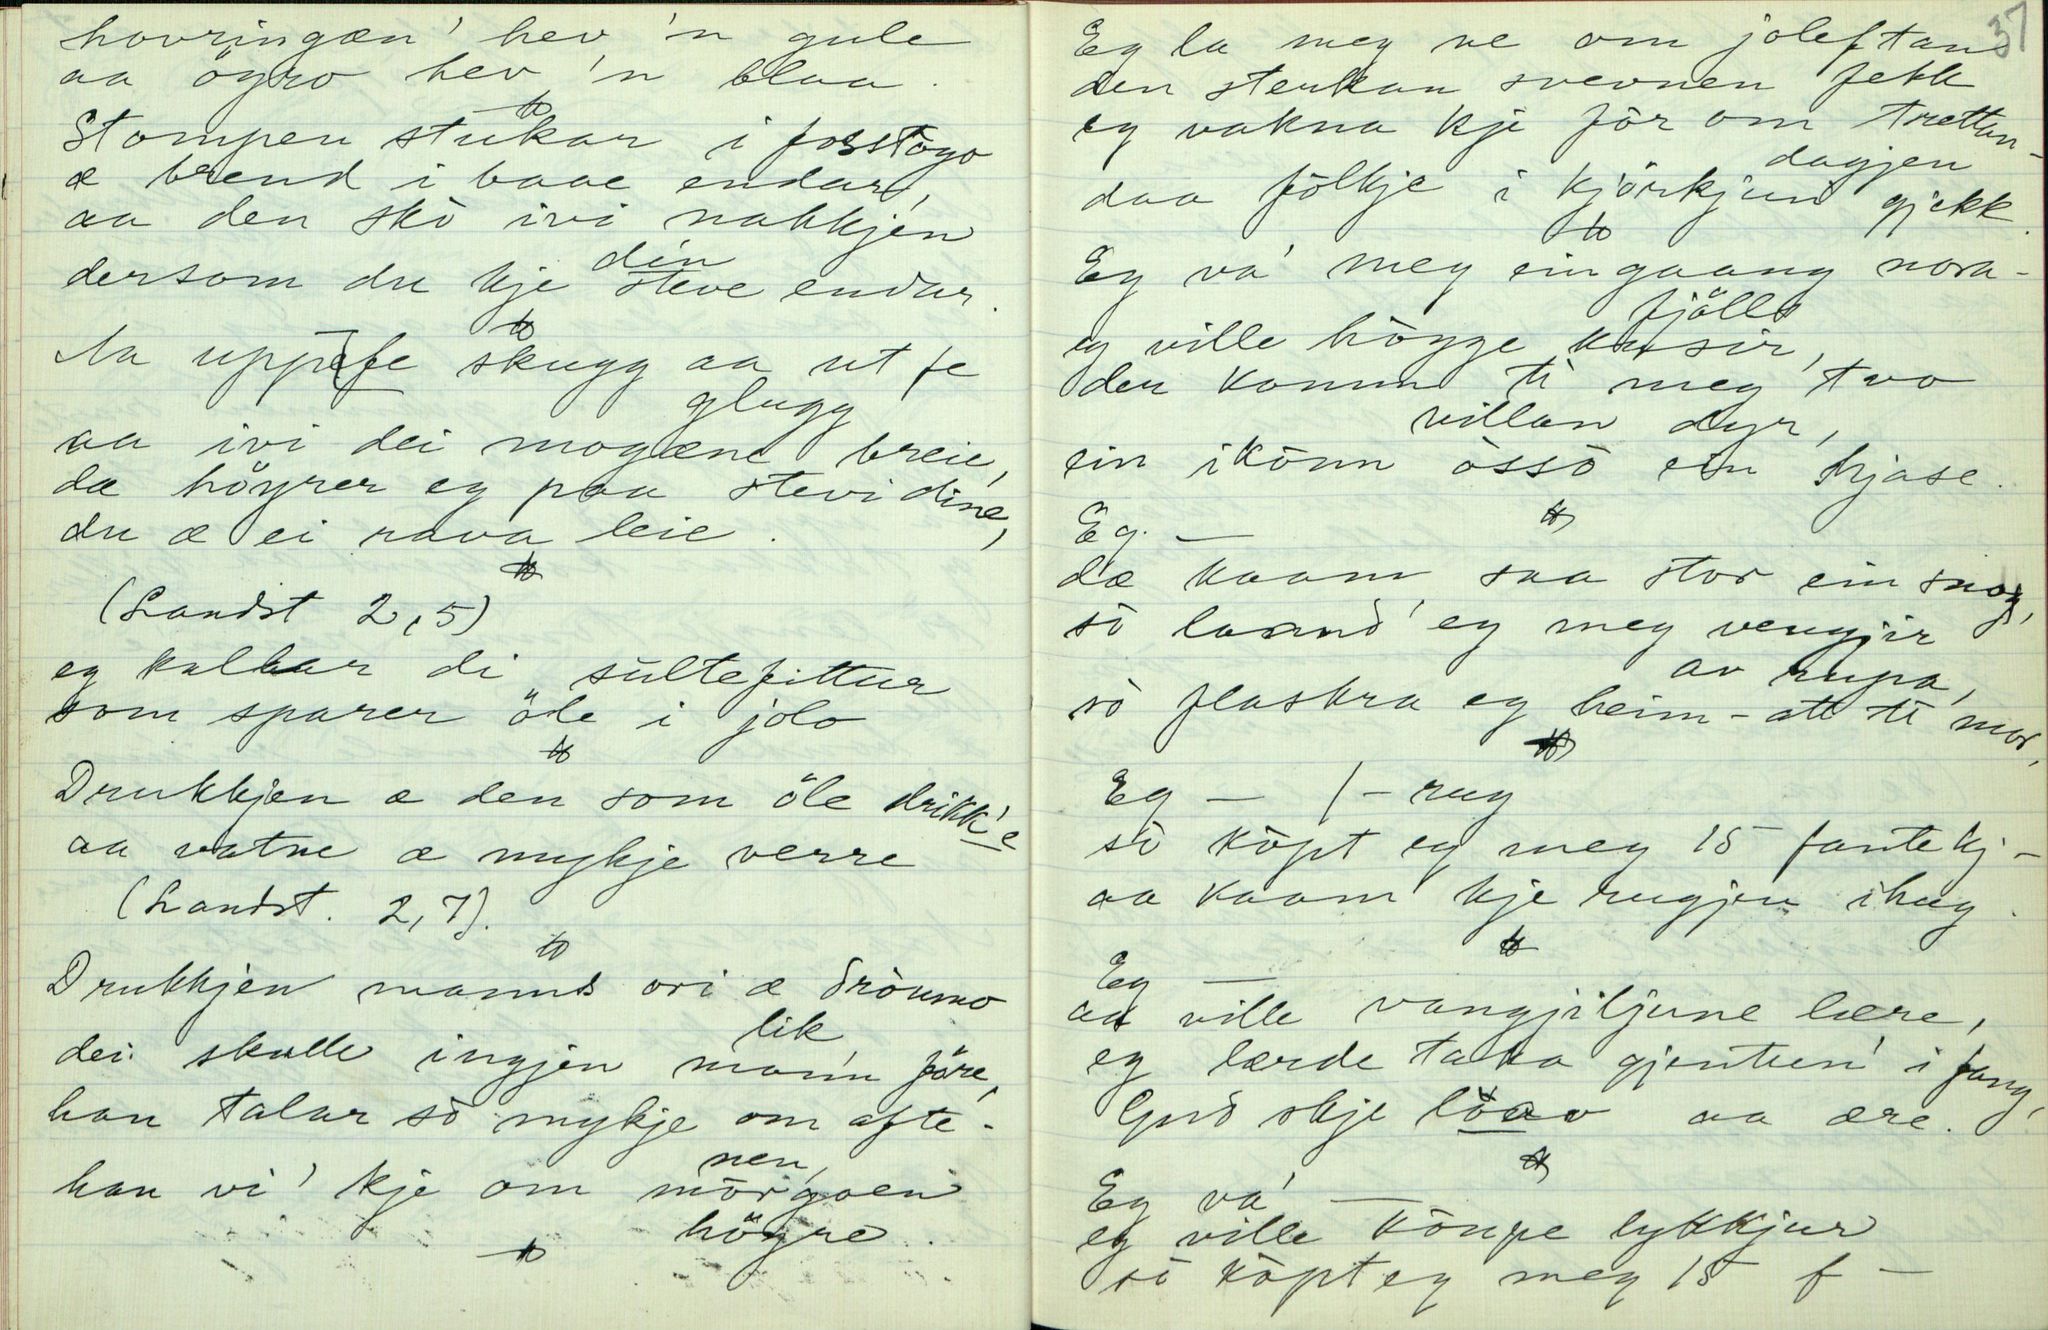 hovringæn' hev 'n gule
aa ögro hev 'n blaa.
Stompen stukar i forstògo
æ brend i baae endar,
aa den skò ivi nakkjen
dersom du kje din steve endar.
Aa uppife skugg aa ut fe glugg
aa ivi dei mogæne breie,
dæ höyrer eg paa stevi dine,
du æ ei rava leie.
(Landst 2,5)
eg kallar di sultefittur
som sparer öle i jolo
Drukkjen æ den som öle drikk'e
aa vatne æ mykje verre
(Landst. 2,7).
Drukkjen manns ori æ dròumo lik
dei skulle ingjen mann före,
han talar sò mykje om aftenen,
han vi' kje om mòrgoen höyre.
37
Eg la meg ne om joleftan
den sterkan svevnen fekk
eg vakna kje för om trettandagjen
daa fòlkje i kjörkjun gjekk.
Eg va' meg eingaang norafjölls
eg ville hògge kvsir,
der komm ti meg two villan dyr,
ein ikònn òssò ein hjase.
Eg. —
dæ kaam saa stor ein snog,
sò laand' eg meg vengjir av rupa,
sò flaskra eg heim-att ti mor,
Eg — / — rug
sò kòpt eg meg 15 fantekj —
aa kaam kje rugjen ihug.
Eg —
aa ville vangjiljune lære,
eg lærde taka gjentun' i fang,
Gud skje lòav aa ære.
Eg va' —
eg ville kòupe lykkjur
sò kòpt eg meg 15 f —